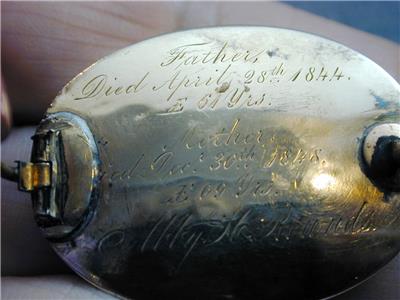 Father,
Died April 28th 1844.
Æ 61 Yrs.
Mother,
Died Dec. 30th 1848.
Æ 69 Yrs.